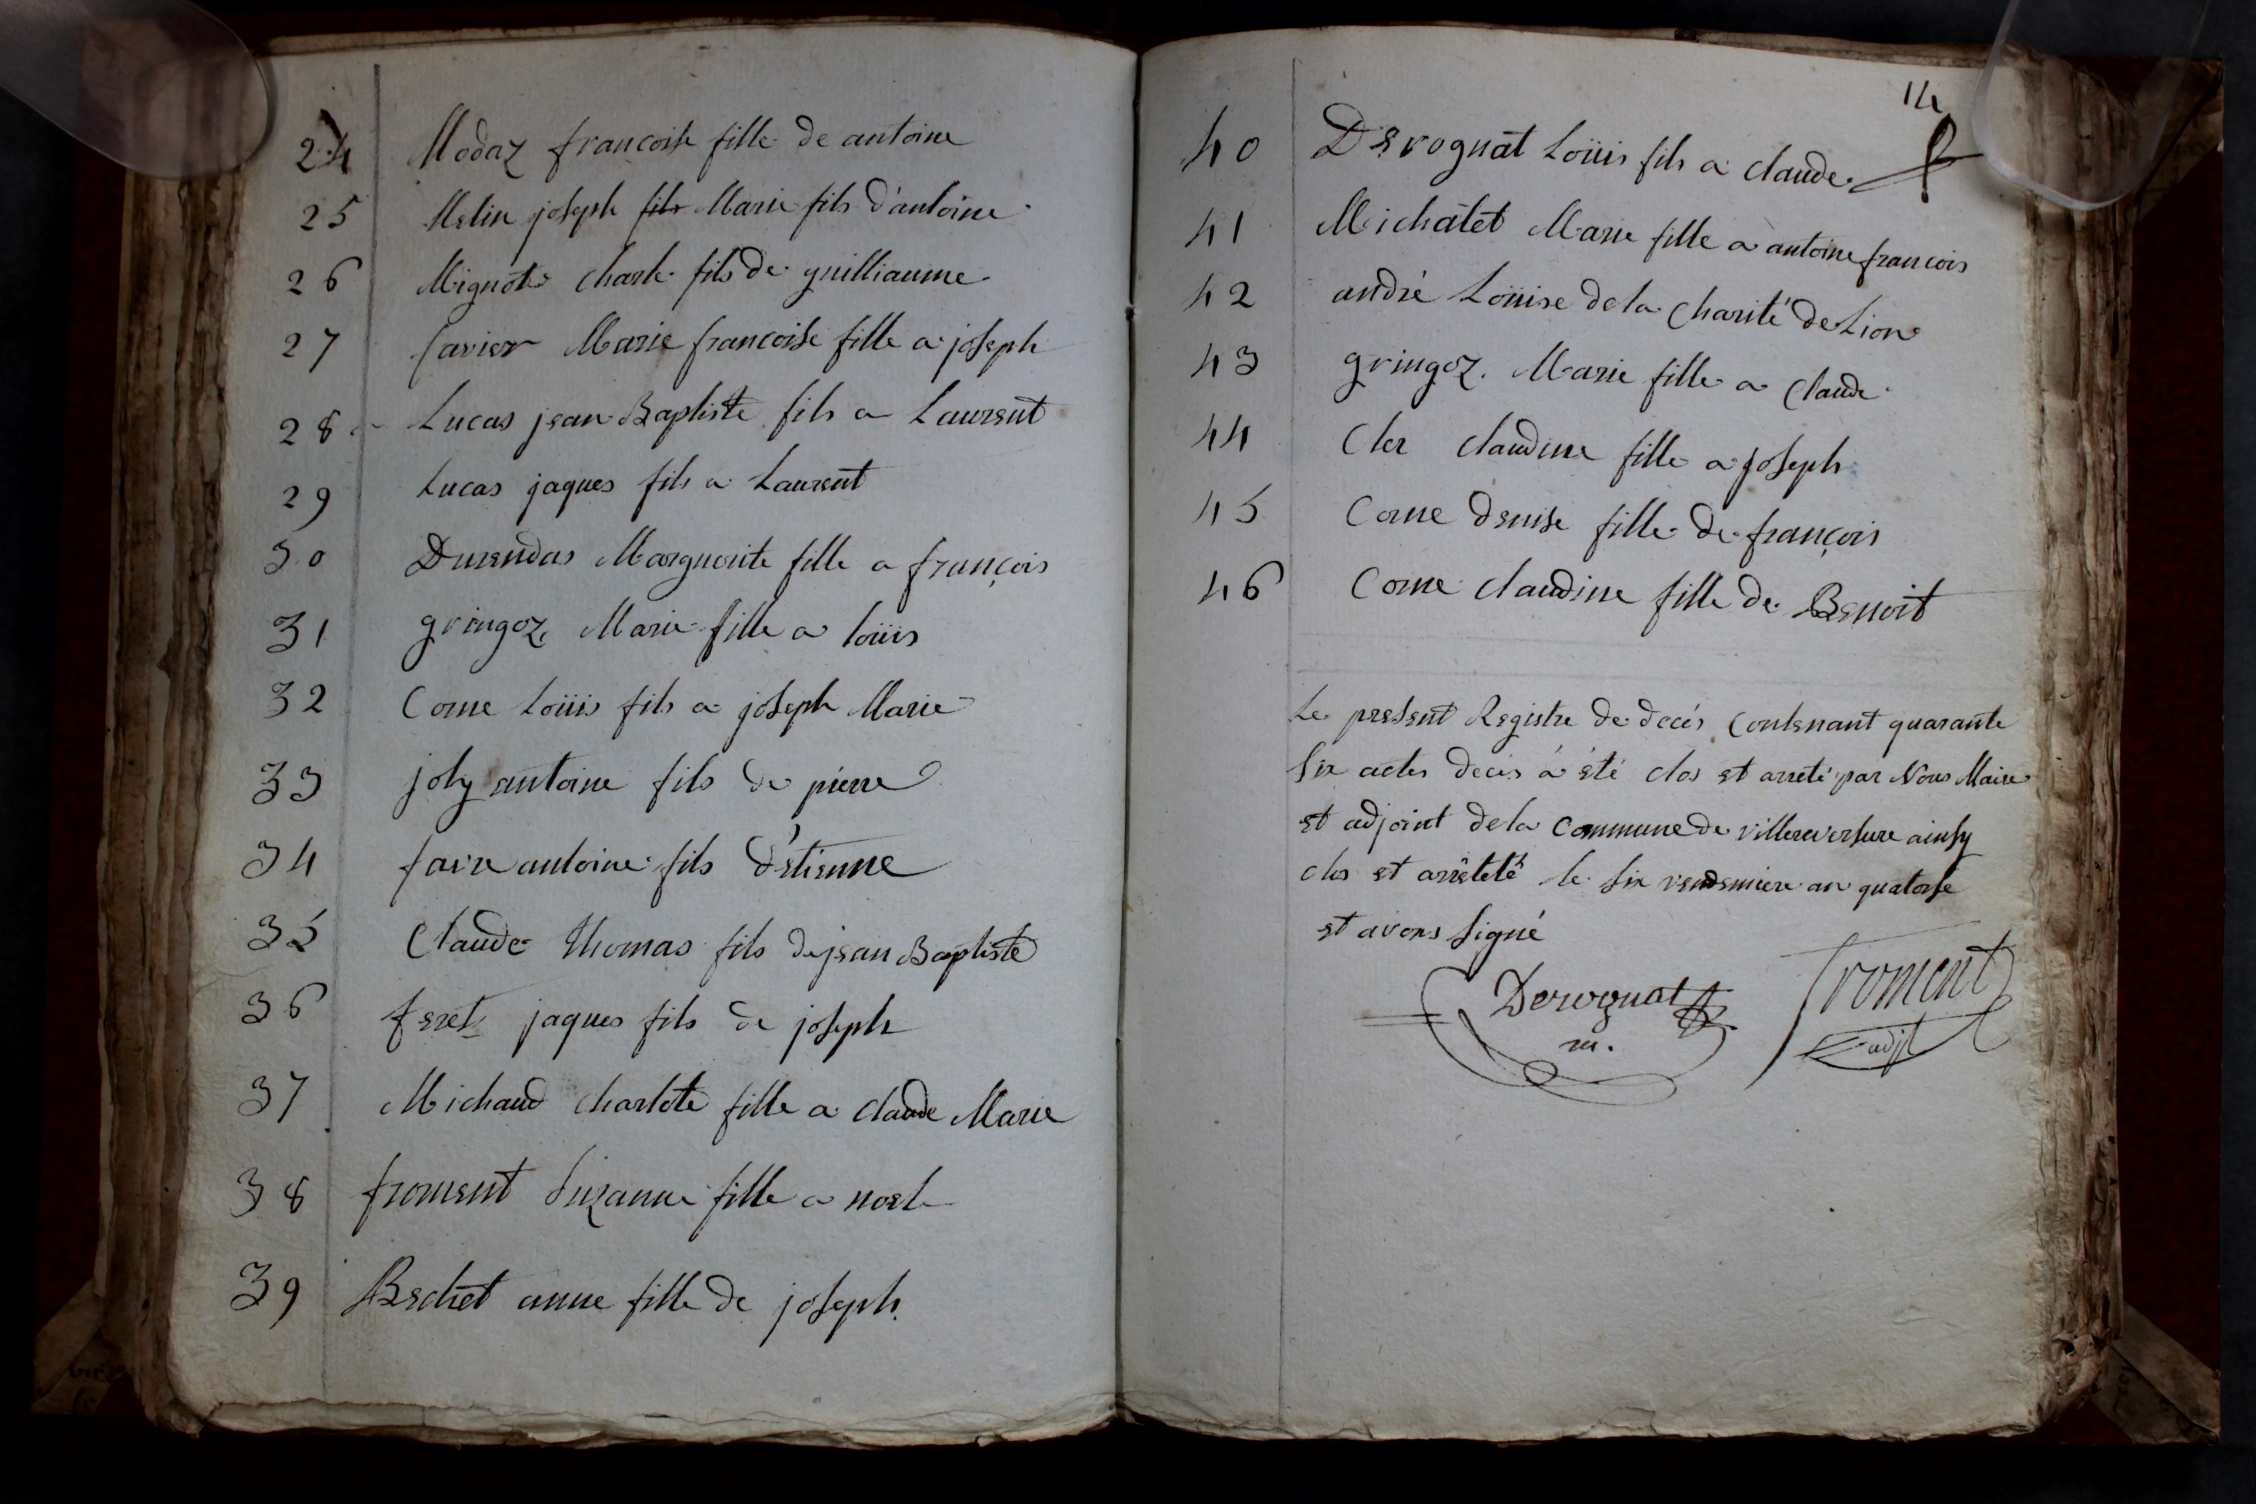 24 Modaz francoise fille de antoine
25 Melin joseph fils Marie fils d'antoine
26 Mignot charle fils de guilliaume
27 favier Marie francoise fille a joseph
28 Lucas jean Baptiste fils a Laurent
29 Lucas jaques fils a Laurent
30 Durendas Marguerite fille a françois
31 gringoz Marie fille a loüis
32 Corne Loüis fils a joseph Marie
33 joly antoine fils de pierre
34 favre antoine fils d'étienne
35 Claude Thomas fils de jean Baptiste
36 feret jaques fils de joseph
37 Michaud charlote fille a claude Marie
38 froment Suzanne fille a noel
39 Bechet anne fille de joseph.
14
40 Derognat Loüis fils a claude
41 Michalet Marie fille a antoine francois
42 andré Loüise de la Charité de Lion
43 gringoz. Marie fille a Claude
44 Cler claudine fille a joseph
45 Corne denise fille de françois
46 Corne claudine fille de Benoit
Le present Registre de decés Contenant quarante
six actes decés à été clos et arreté par Nous Maire
et adjoint de la Commune de villereversure ainsy
clos et arrêteté le six vendemiere an quatorse
et avons signé
Derognat froment
m. adjt